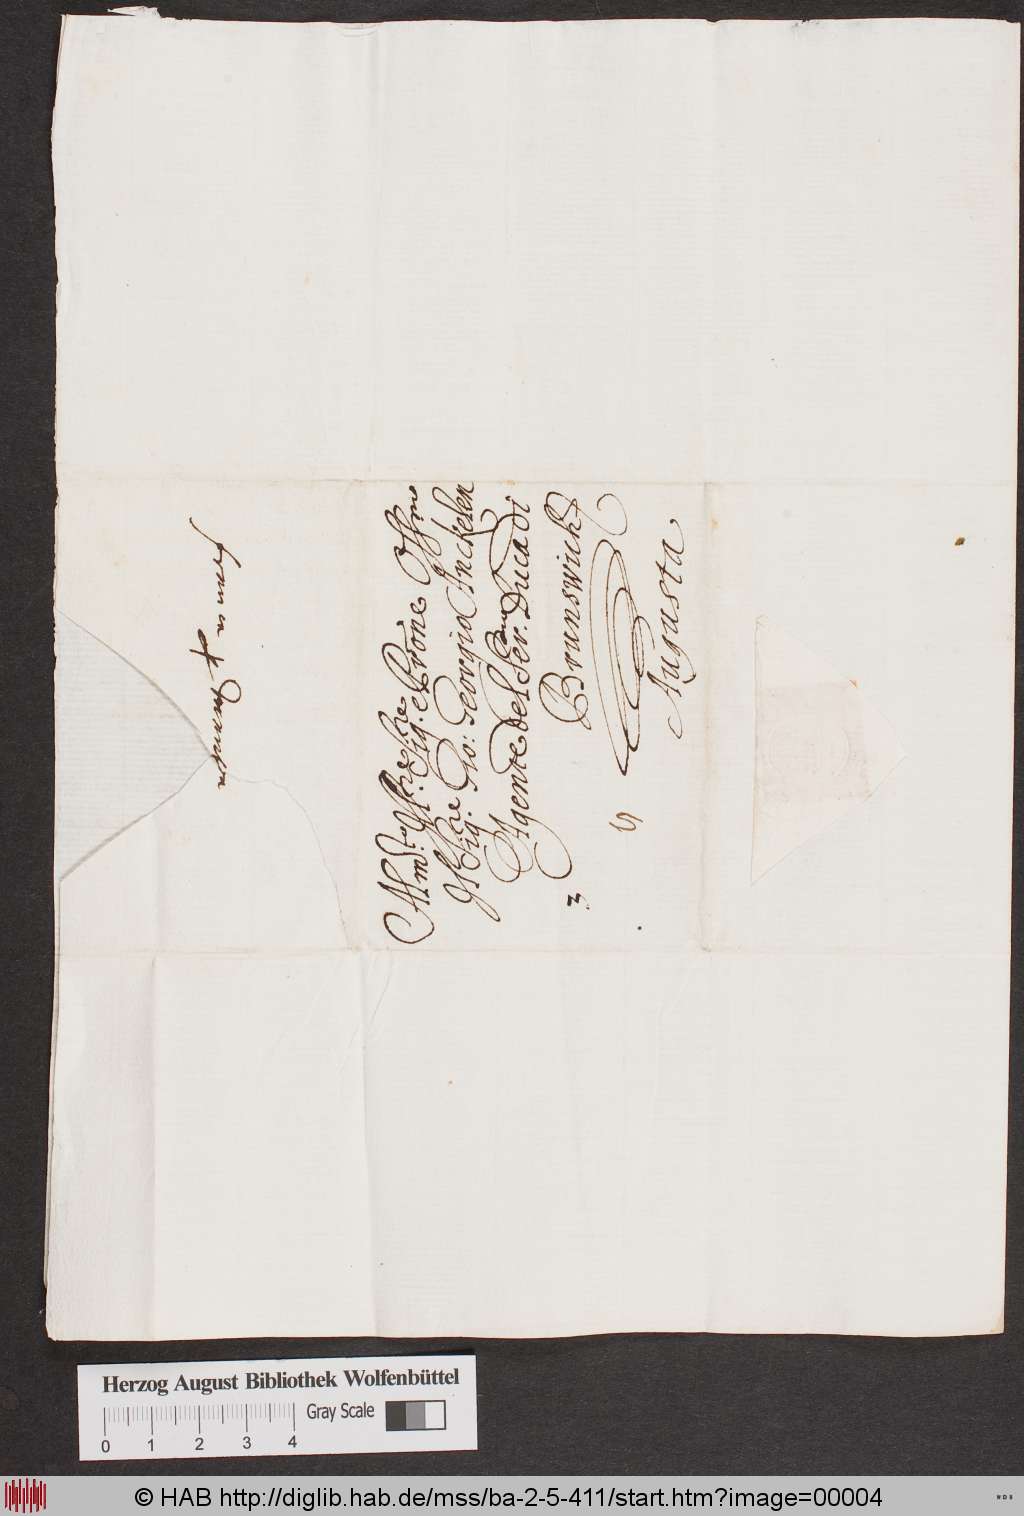 All. m.to Ill.re Sig.re e Prone Oss.mo
Il Sig.re Gio: Georgio Anckelen
Agente del Ser.mo Duca di
Brunswich
Augusta
3
Herzog August Bibliothek Wolfenbüttel
Gray Scale
0 1 2 3 4
© HAB http://diglib.hab.de/mss/ba-2-5-411/start.htm?image=00004